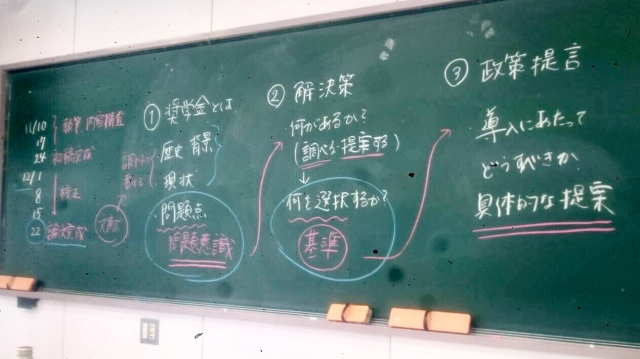 11/10
17
24 初稿完成
12/1
8 修正
15
22 論文完成
① 奨学金とは
歴史 背景
現状
問題点
問題意識
② 解決策
何があるか?
(調べる・提案する)
↓
何を選択するか?
基準
③ 政策提言
導入にあたって
どうすべきか
具体的な提案